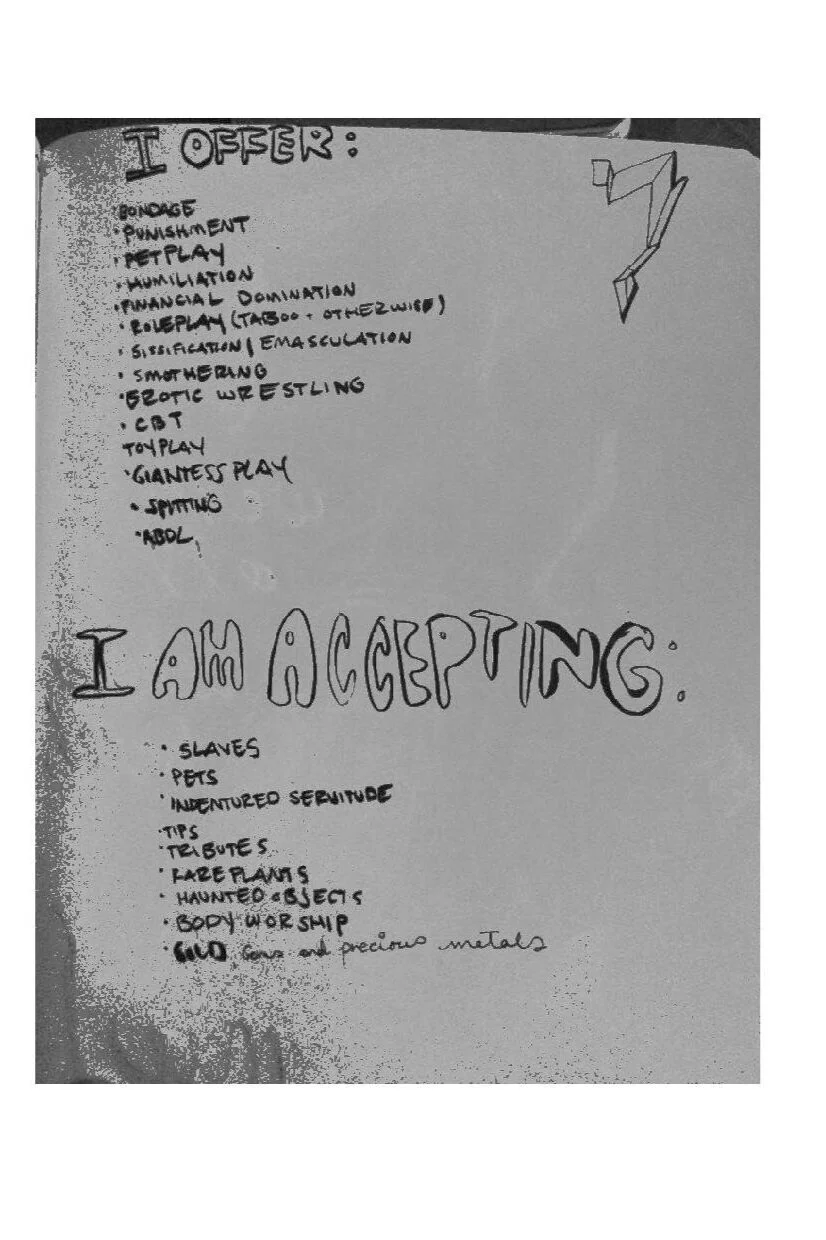 I OFFER:
•BONDAGE
•PUNISHMENT
•PETPLAY
•HUMILIATION
•FINANCIAL DOMINATION
•ROLEPLAY (TABOO + OTHERWISE)
•SISSIFICATION/EMASCULATION
•SMOTHERING
•EROTIC WRESTLING
•CBT
TOYPLAY
•GIANTESS PLAY
•SPITTING
•ABDL
I AM ACCEPTING:
•SLAVES
•PETS
•INDENTURED SERVITUDE
•TIPS
•TRIBUTES
•RARE PLANTS
•HAUNTED OBJECTS
•BODY WORSHIP
•GOLD Gems and precious metals